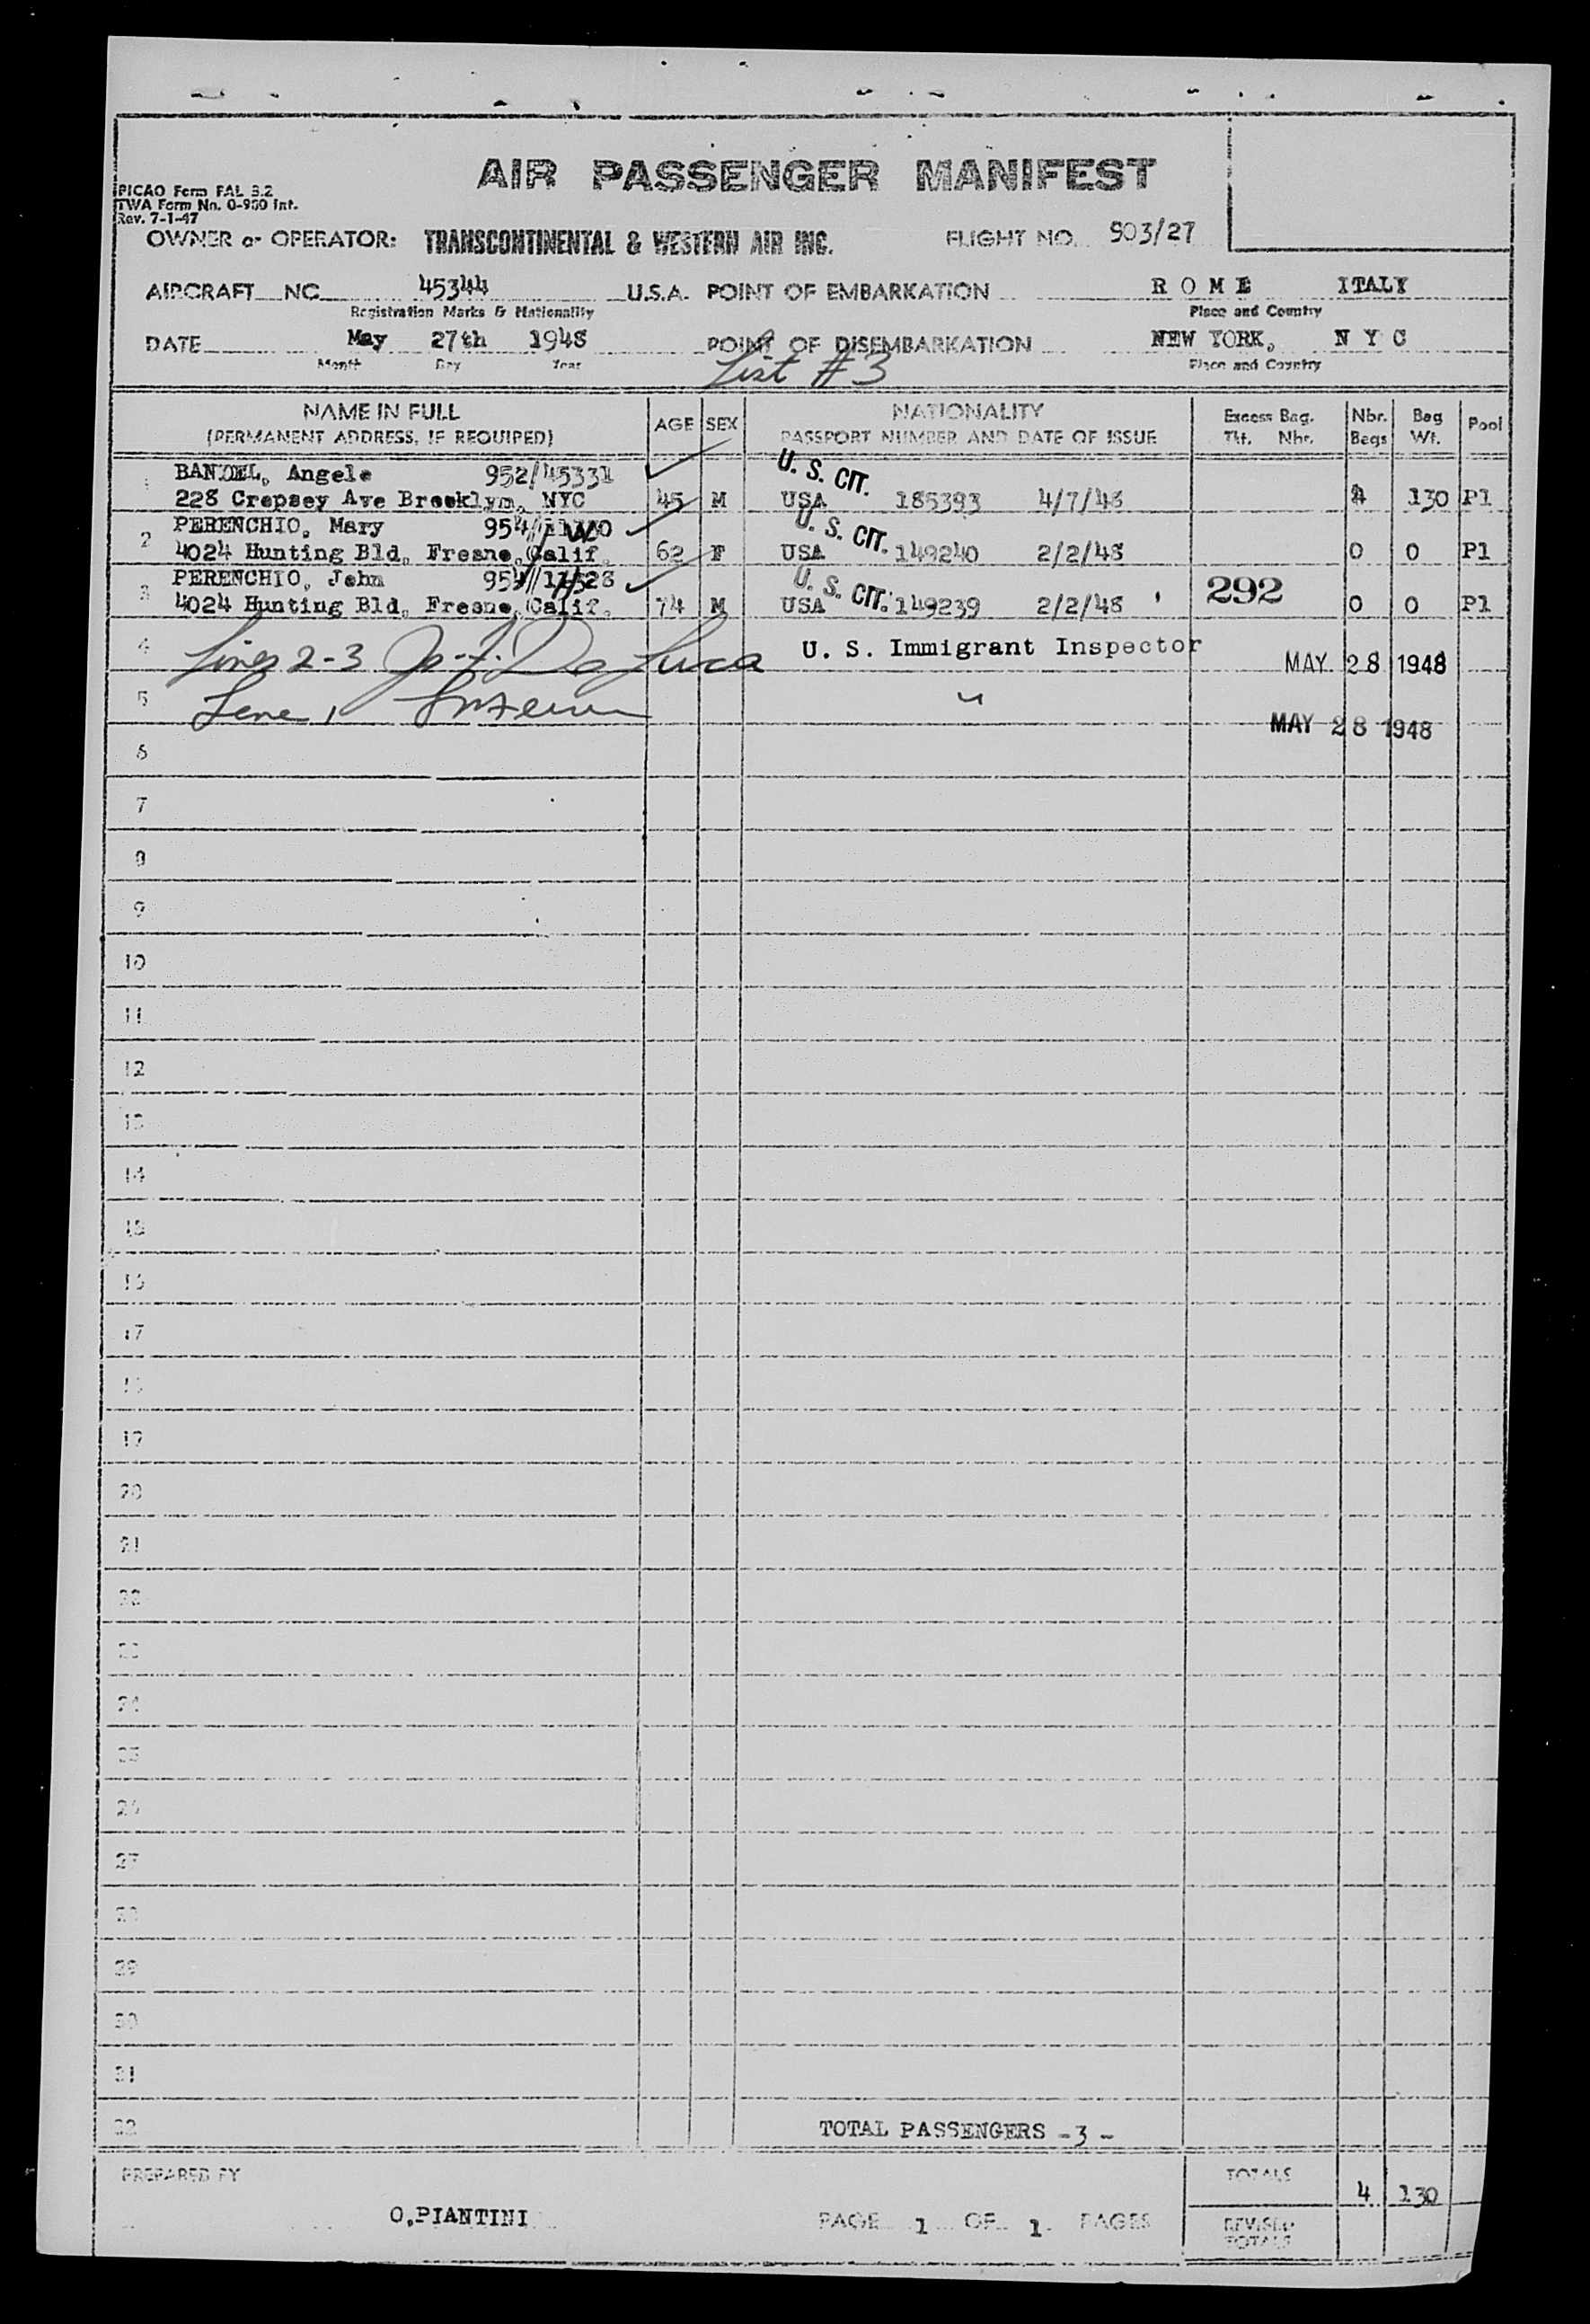 AIR PASSENGER MANIFEST
PICAO Form FAL 3.2
TWA Form No. 0-950 Int.
Rev. 7-1-47
OWNER or OPERATOR: TRANSCONTINENTAL & WESTERN AIR INC. FLIGHT NO. 903/27
AIRCRAFT NC 45344 U.S.A. POINT OF EMBARKATION R O M E ITALY
Registration Marks & Nationality Place and Country
DATE May 27th 1948 POINT OF DISEMBARKATION NEW YORK, N Y C
Month Day Year Place and Country
List #3
NAME IN FULL AGE SEX NATIONALITY Excess Bag. Nbr. Bag Pool
(PERMANENT ADDRESS, IF REQUIRED) PASSPORT NUMBER AND DATE OF ISSUE Tkt. Nbr. Bags Wt.
1 Angelo 952/45331 U. S. CIT.
228 Cropsey Ave Brooklym, NYC 45 M USA 185393 4/7/48 4 130 Pl
2 PERENCHIO, Mary U. S. CIT.
4024 Hunting Bld, Fresno, Calif. 62 F USA 149240 2/2/48 0 0 Pl
3 PERENCHIO, John U. S. CIT. 292
4024 Hunting Bld, Fresno, Calif. 74 M USA 149239 2/2/48 0 0 Pl
4 Lines 2-3 De Luca U. S. Immigrant Inspector MAY 28 1948
5 Line 1 " MAY 28 1948
6
7
8
9
10
11
12
13
14
15
16
17
18
19
20
21
22
23
24
25
26
27
28
29
30
31
32 TOTAL PASSENGERS -3-
PREPARED BY TOTALS 4 130
O.PIANTINI PAGE 1 OF 1 PAGES REVISED
TOTALS